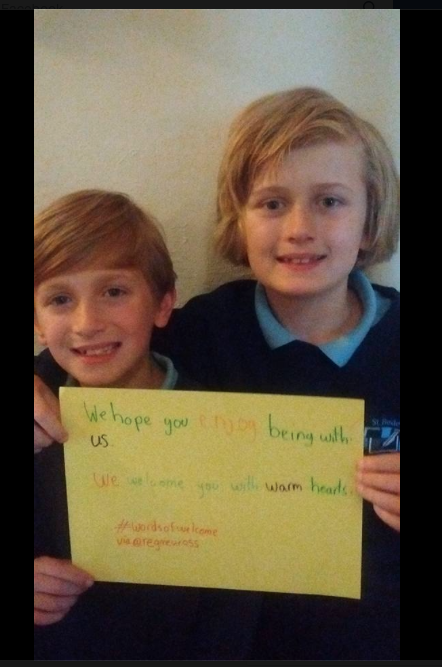 We hope you enjoy being with
us.
We welcome you with warm hearts.
#wordsofwelcome